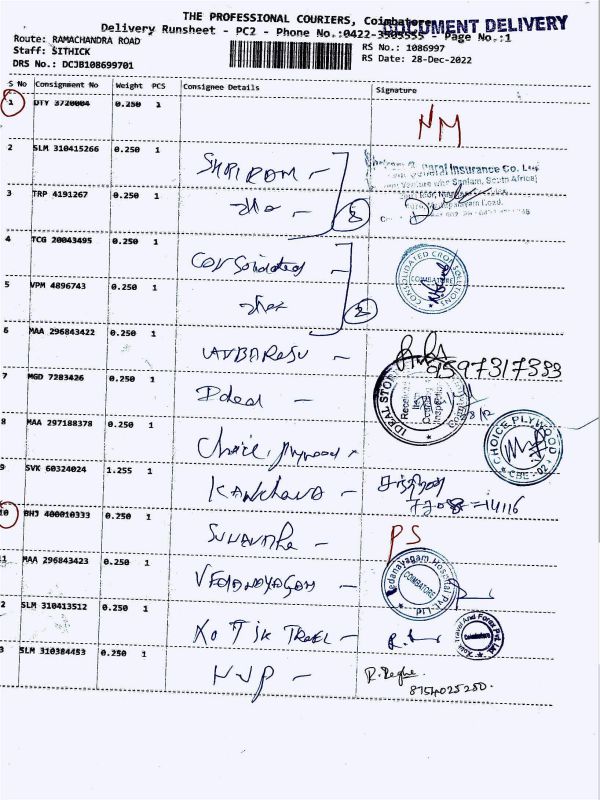 THE PROFESSIONAL COURIERS, Coimbatore
DOCUMENT DELIVERY
Delivery Runsheet - PC2 - Phone No.:0422-3505555 - Page No.:1
Route: RAMACHANDRA ROAD
RS No.: 1086997
Staff: SITHICK
RS Date: 28-Dec-2022
DRS No.: DCJB108699701
S No Consignment No Weight PCS Consignee Details Signature
1 DTY 3720004 0.250 1
NM
2 SLM 310415266 0.250 1
SHRIRAM -
General Insurance Co. Ltd
Sanlam, South Africa)
3 TRP 4191267 0.250 1
4 TCG 20043495 0.250 1
Consolidated -
CONSOLIDATED CROP SOLUTIONS
COIMBATORE
2
5 VPM 4896743 0.250 1
6 MAA 296843422 0.250 1
9597317333
7 MGD 7283426 0.250 1
Ideal -
IDEAL
8 MAA 297188378 0.250 1
Choice plywood
CHOICE PLYWOOD
CBE-02
9 SVK 60324024 1.255 1
KANCHANA -
10 BHJ 400010333 0.250 1
PS
11 MAA 296843423 0.250 1
VEDANAYAGAM -
Vedanayagam Hospital Pvt. Ltd.
COIMBATORE
2 SLM 310413512 0.250 1
KOTIK TRAVEL -
Travel And Forex Pvt. Ltd.
Coimbatore
3 SLM 310384453 0.250 1
NVP -
8754025250.